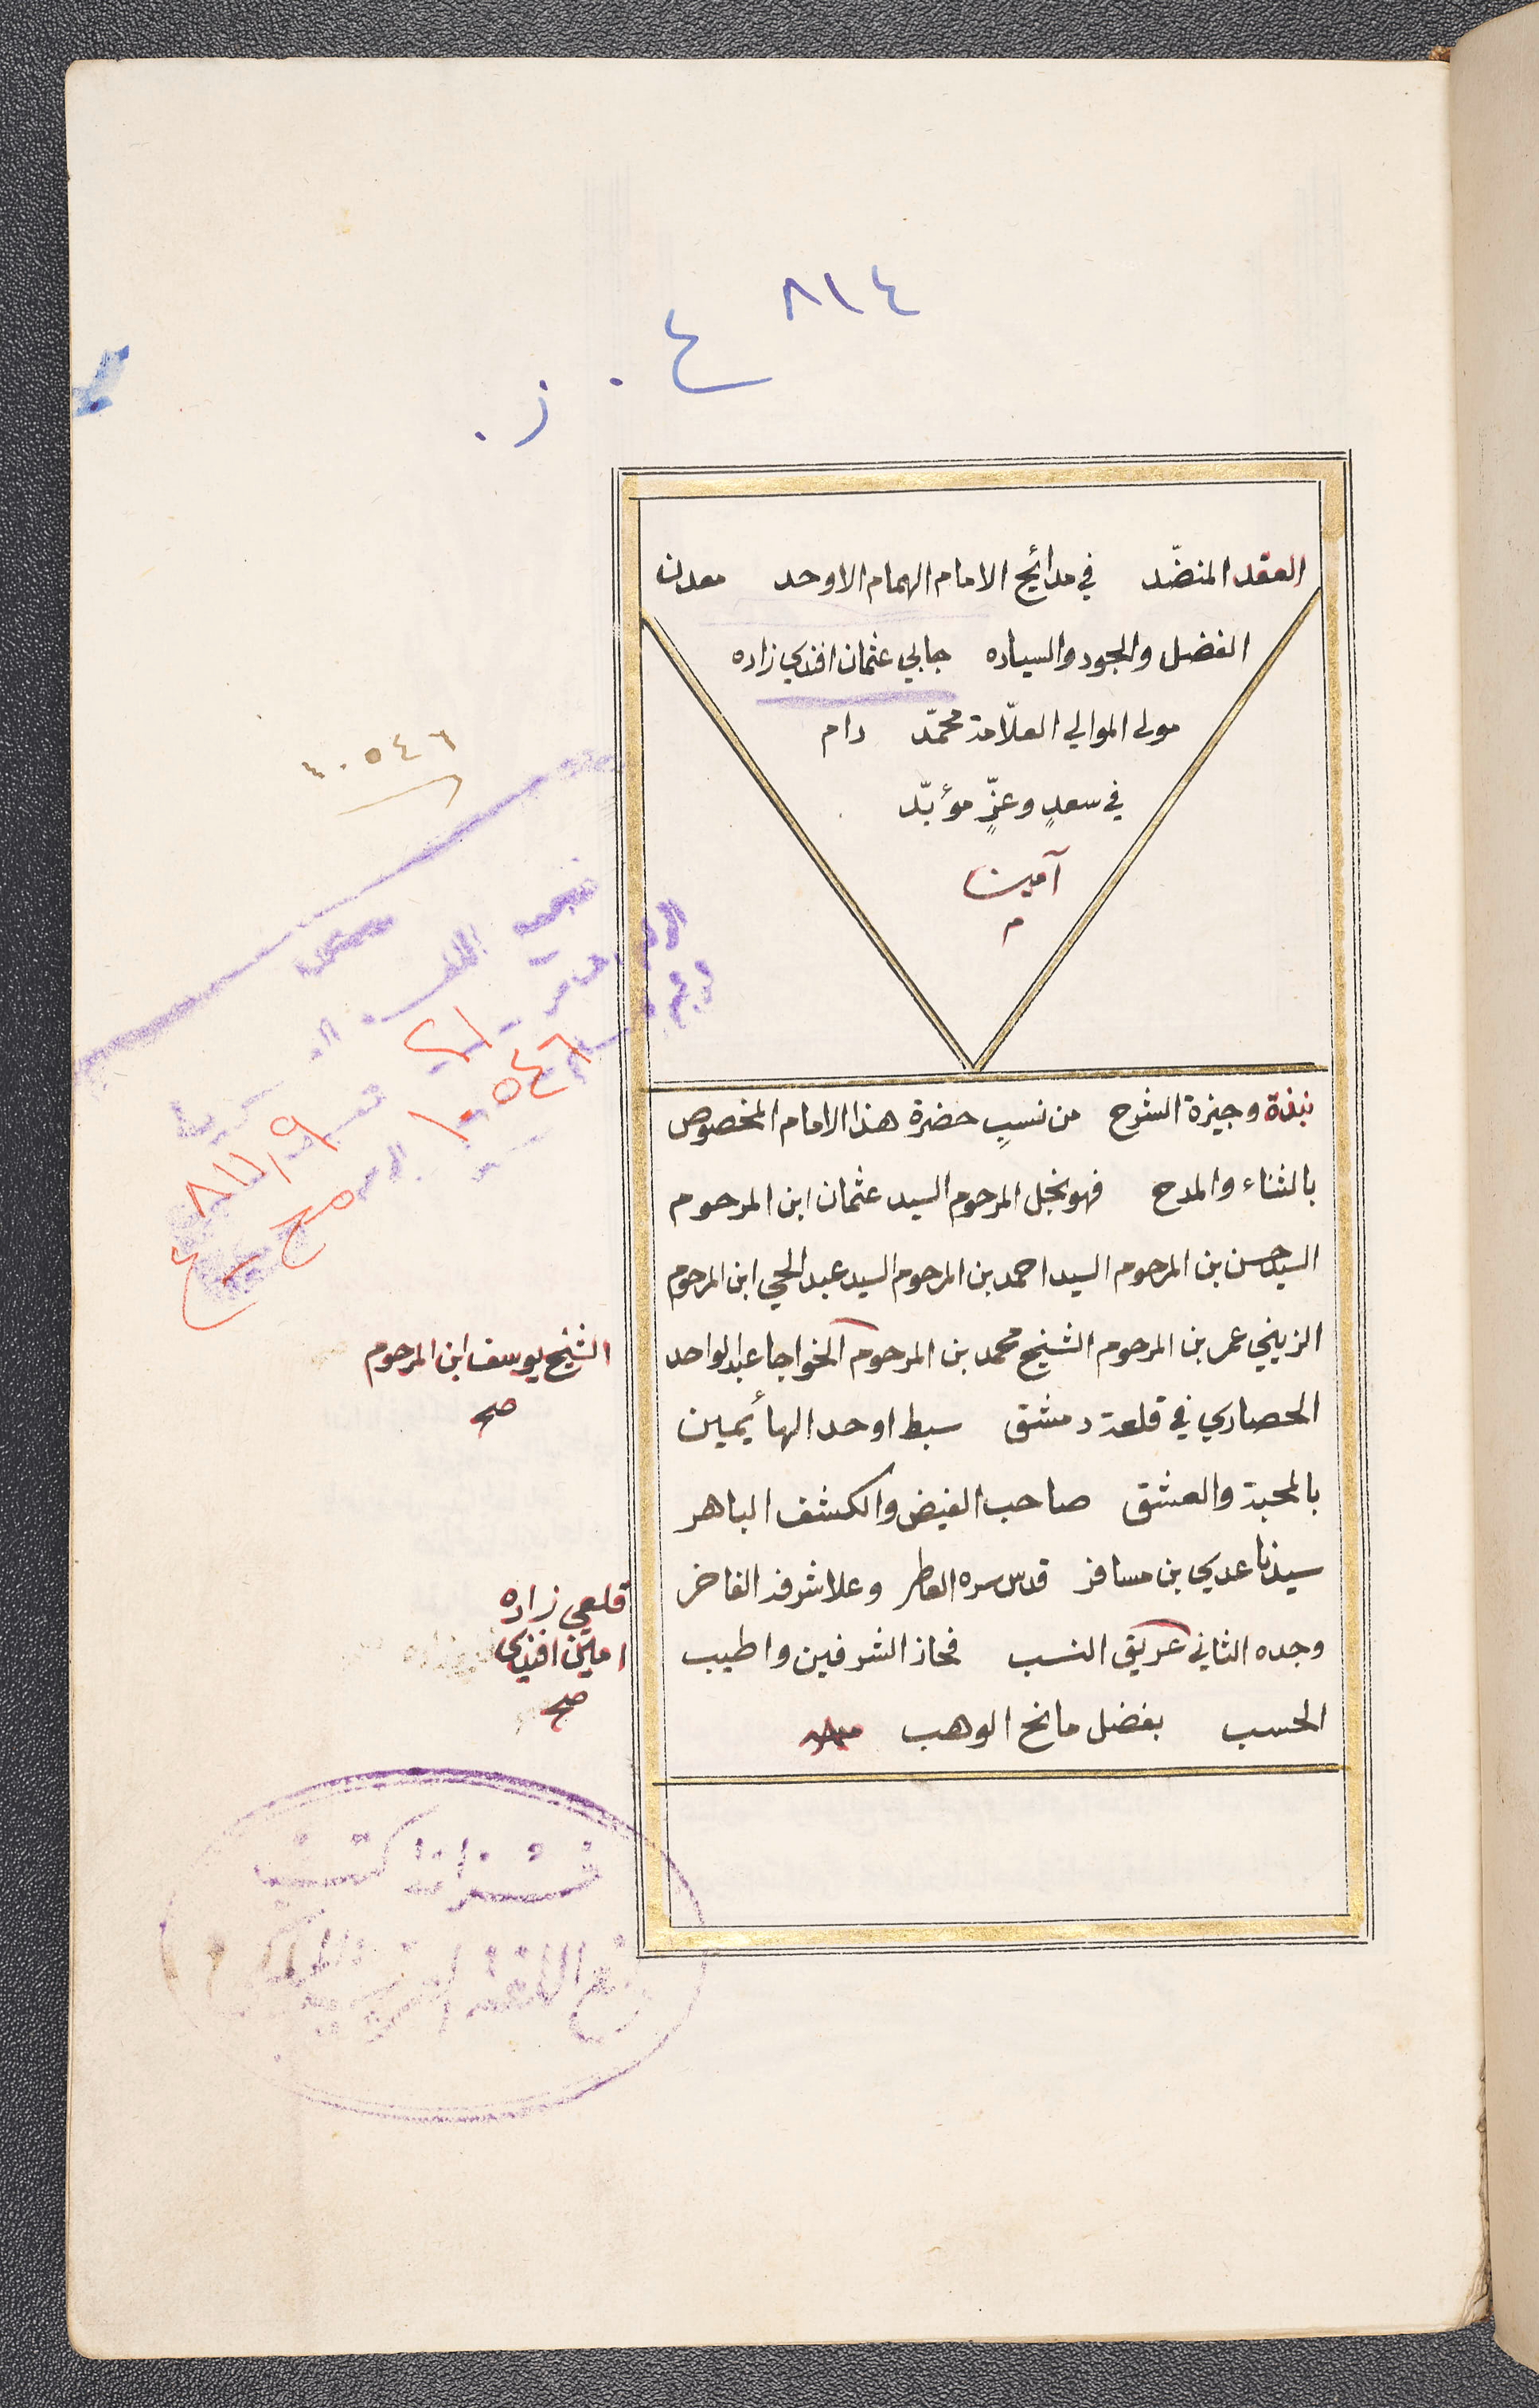 ٨١٤
ع . ز .
العقد المنضّد في مدائح الامام الهمام الاوحد معدن
الفضل والجود والسياده جابي عثمان افندي زاده
مولى الموالي العلّامة محمّد دام
في سعدٍ وعزٍّ مؤبّد
آمين
م
١٠٥٤٦
نبذة وجيزة الشرح من نسبٍ حضرة هذا الامام المخصوص
بالثناء والمدح فهو نجل المرحوم السيد عثمان ابن المرحوم
السيد حسن بن المرحوم السيد احمد بن المرحوم السيد عبد الحي ابن المرحوم
الزيني عمر بن المرحوم الشيخ محمد بن المرحوم الخواجا عبد الواحد
الحصاري في قلعة دمشق سبط اوحد الهأيمين
بالمحبة والعشق صاحب الفيض والكشف الباهر
سيدنا عدي بن مسافر قدس سره العاطر وعلا شرفه الفاخر
وجده الثاني عريق النسب فحاز الشرفين واطيب
الحسب بفضل مانح الوهب
الشيخ يوسف ابن المرحوم
صح
قلعي زاده
امين افندي
صح
١٠٥٤٦